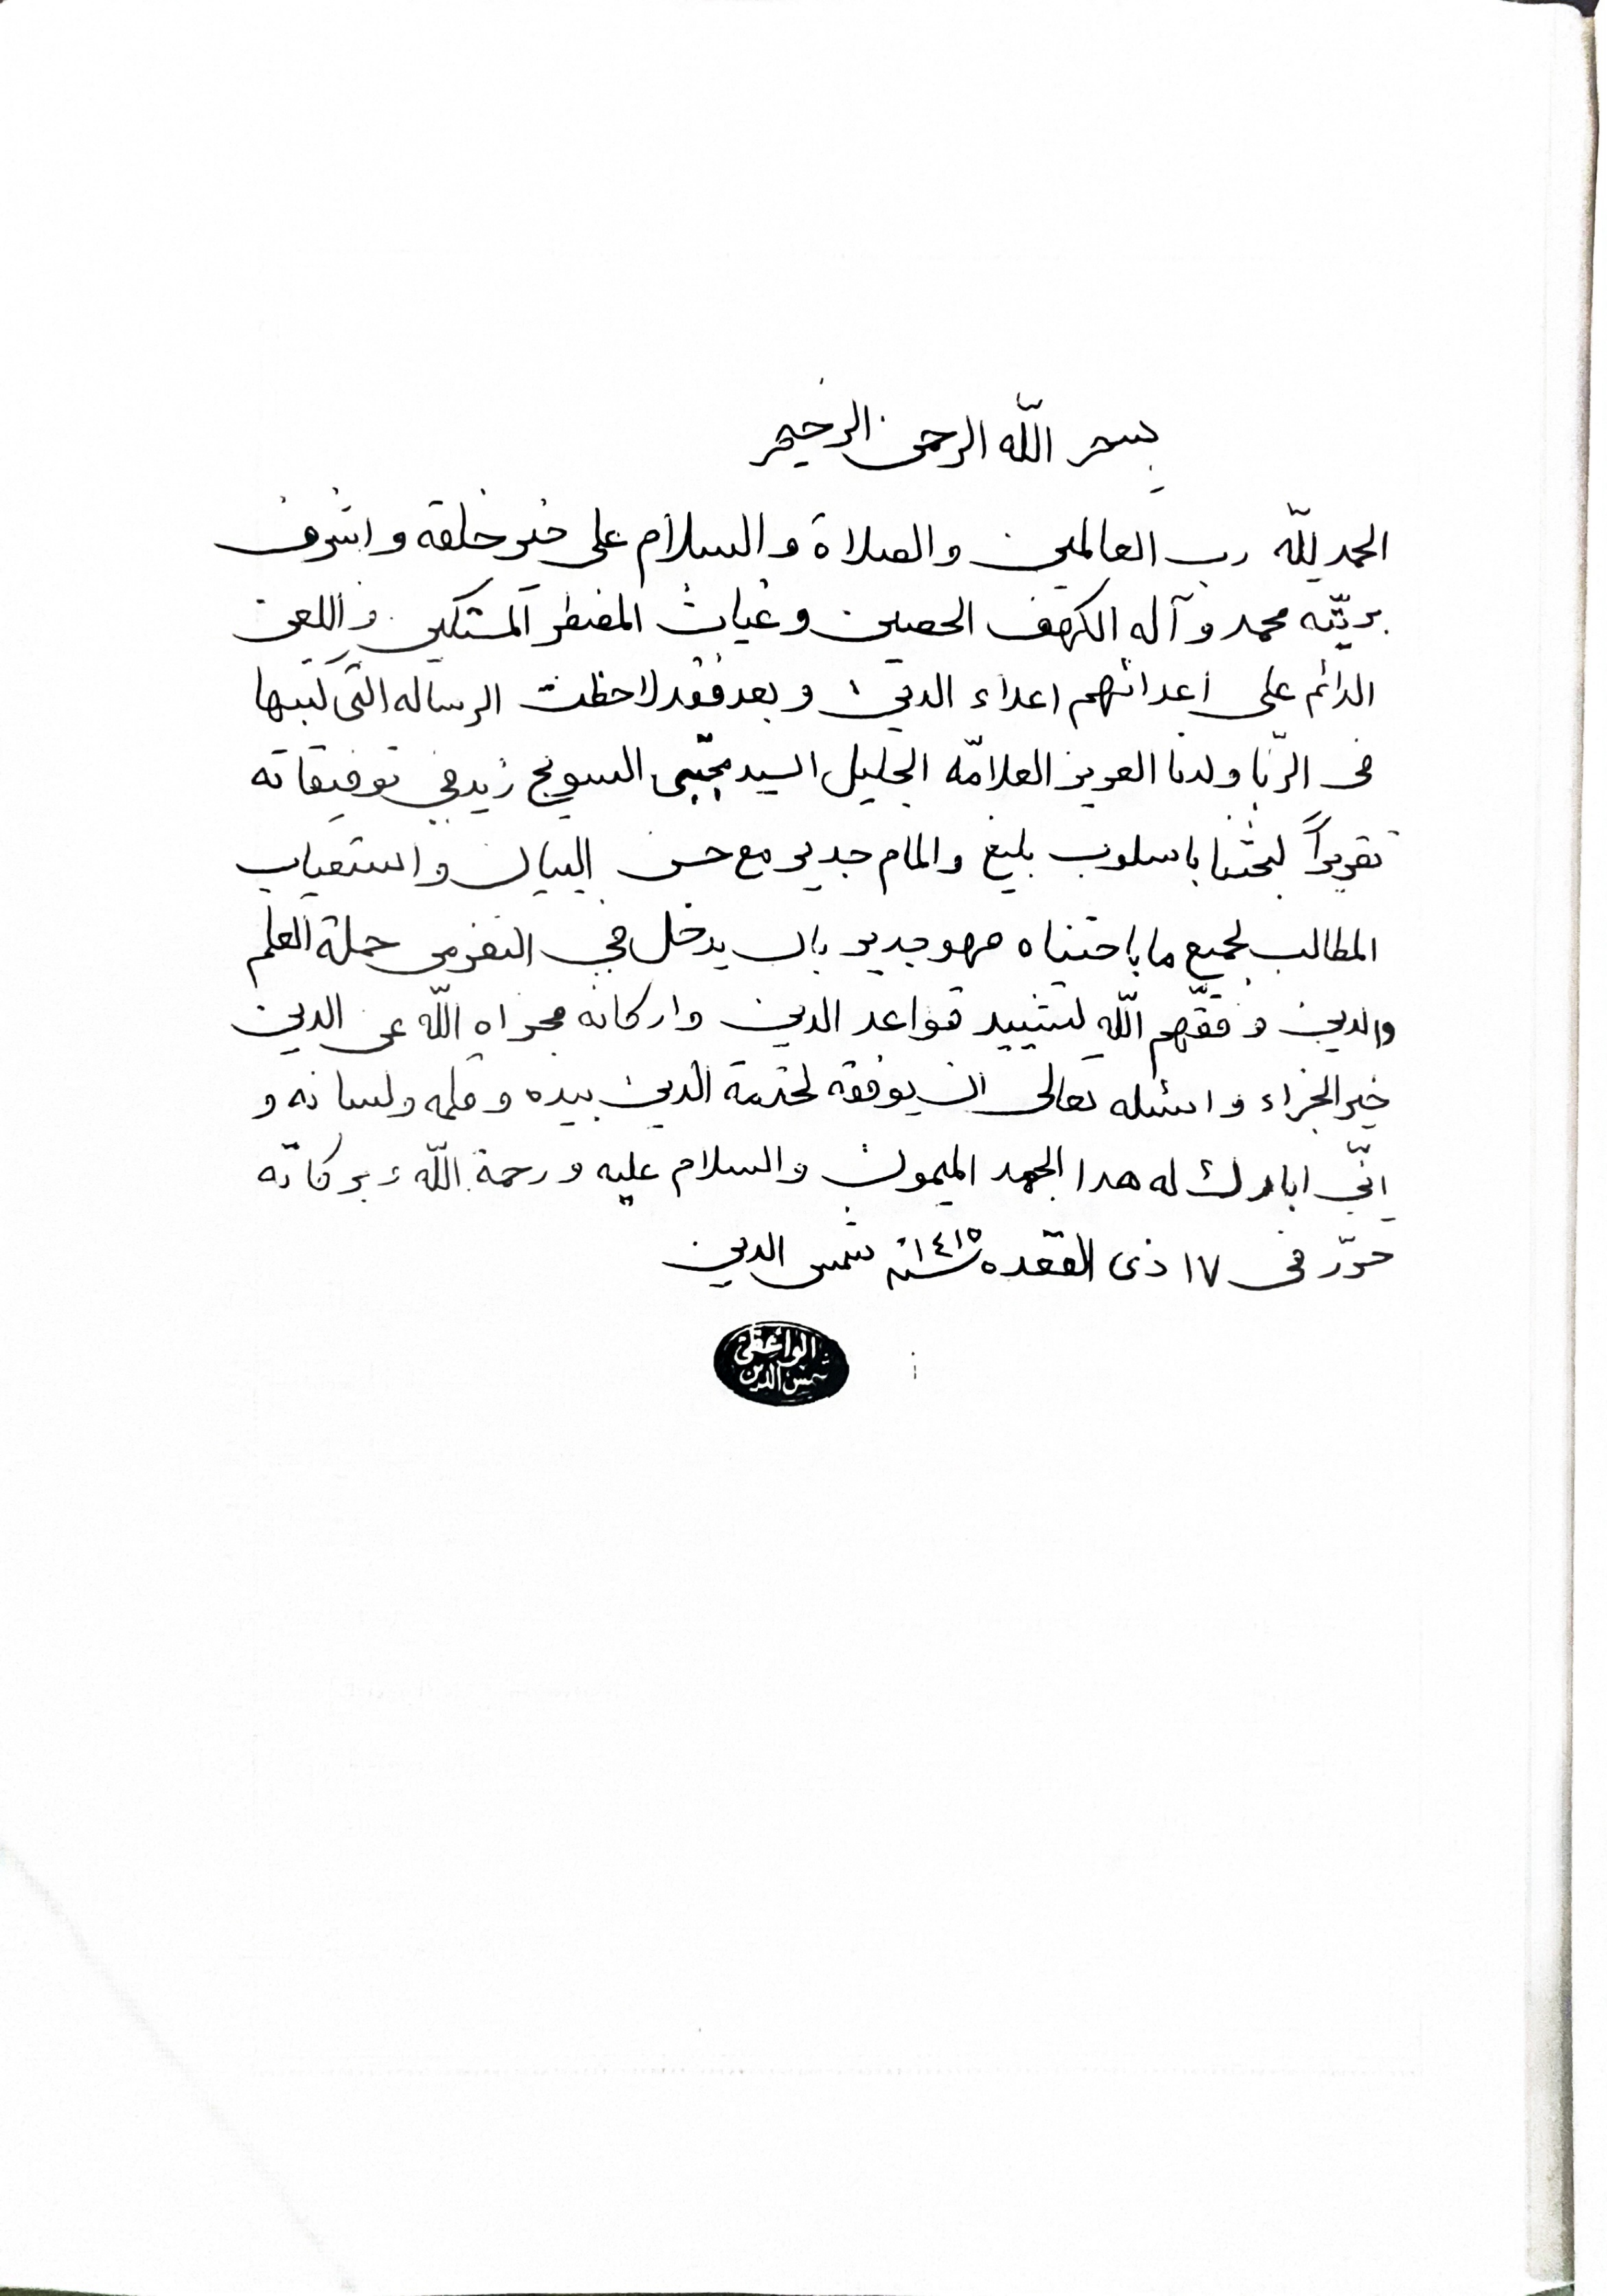 بسم الله الرحمن الرحيم
الحمد لله رب العالمين والصلاة والسلام على خير خلقه واشرف
بريّته محمد وآله الكهف الحصين وغياث المضطر المستكين واللعن
الدائم على اعدائهم اعداء الدين وبعد فقد لاحظت الرساله التى كتبها
فى الرّبا ولدنا العزيز العلامّه الجليل السيد مجتبى السويج زيد فى توفيقاته
تقريراً لبحثنا باسلوب بليغ والمام جدير مع حسن البيان واستيعاب
المطالب لجميع ما باحثناه فهو جدير بان يدخل في النفر من حملة العلم
والدين وفقّهم اللّه لتشييد قواعد الدين واركانه فجزاه اللّه عن الدين
خير الجزاء واسئله تعالى ان يوفقه لخدمة الدين بيده وقلمه ولسانه و
انّي ابارك له هذا الجهد الميمون والسلام عليه ورحمة اللّه وبركاته
حرّر فى ١٧ ذى القعده سنة ١٤١٥ شمس الدين
الواعظي
شمس الدين